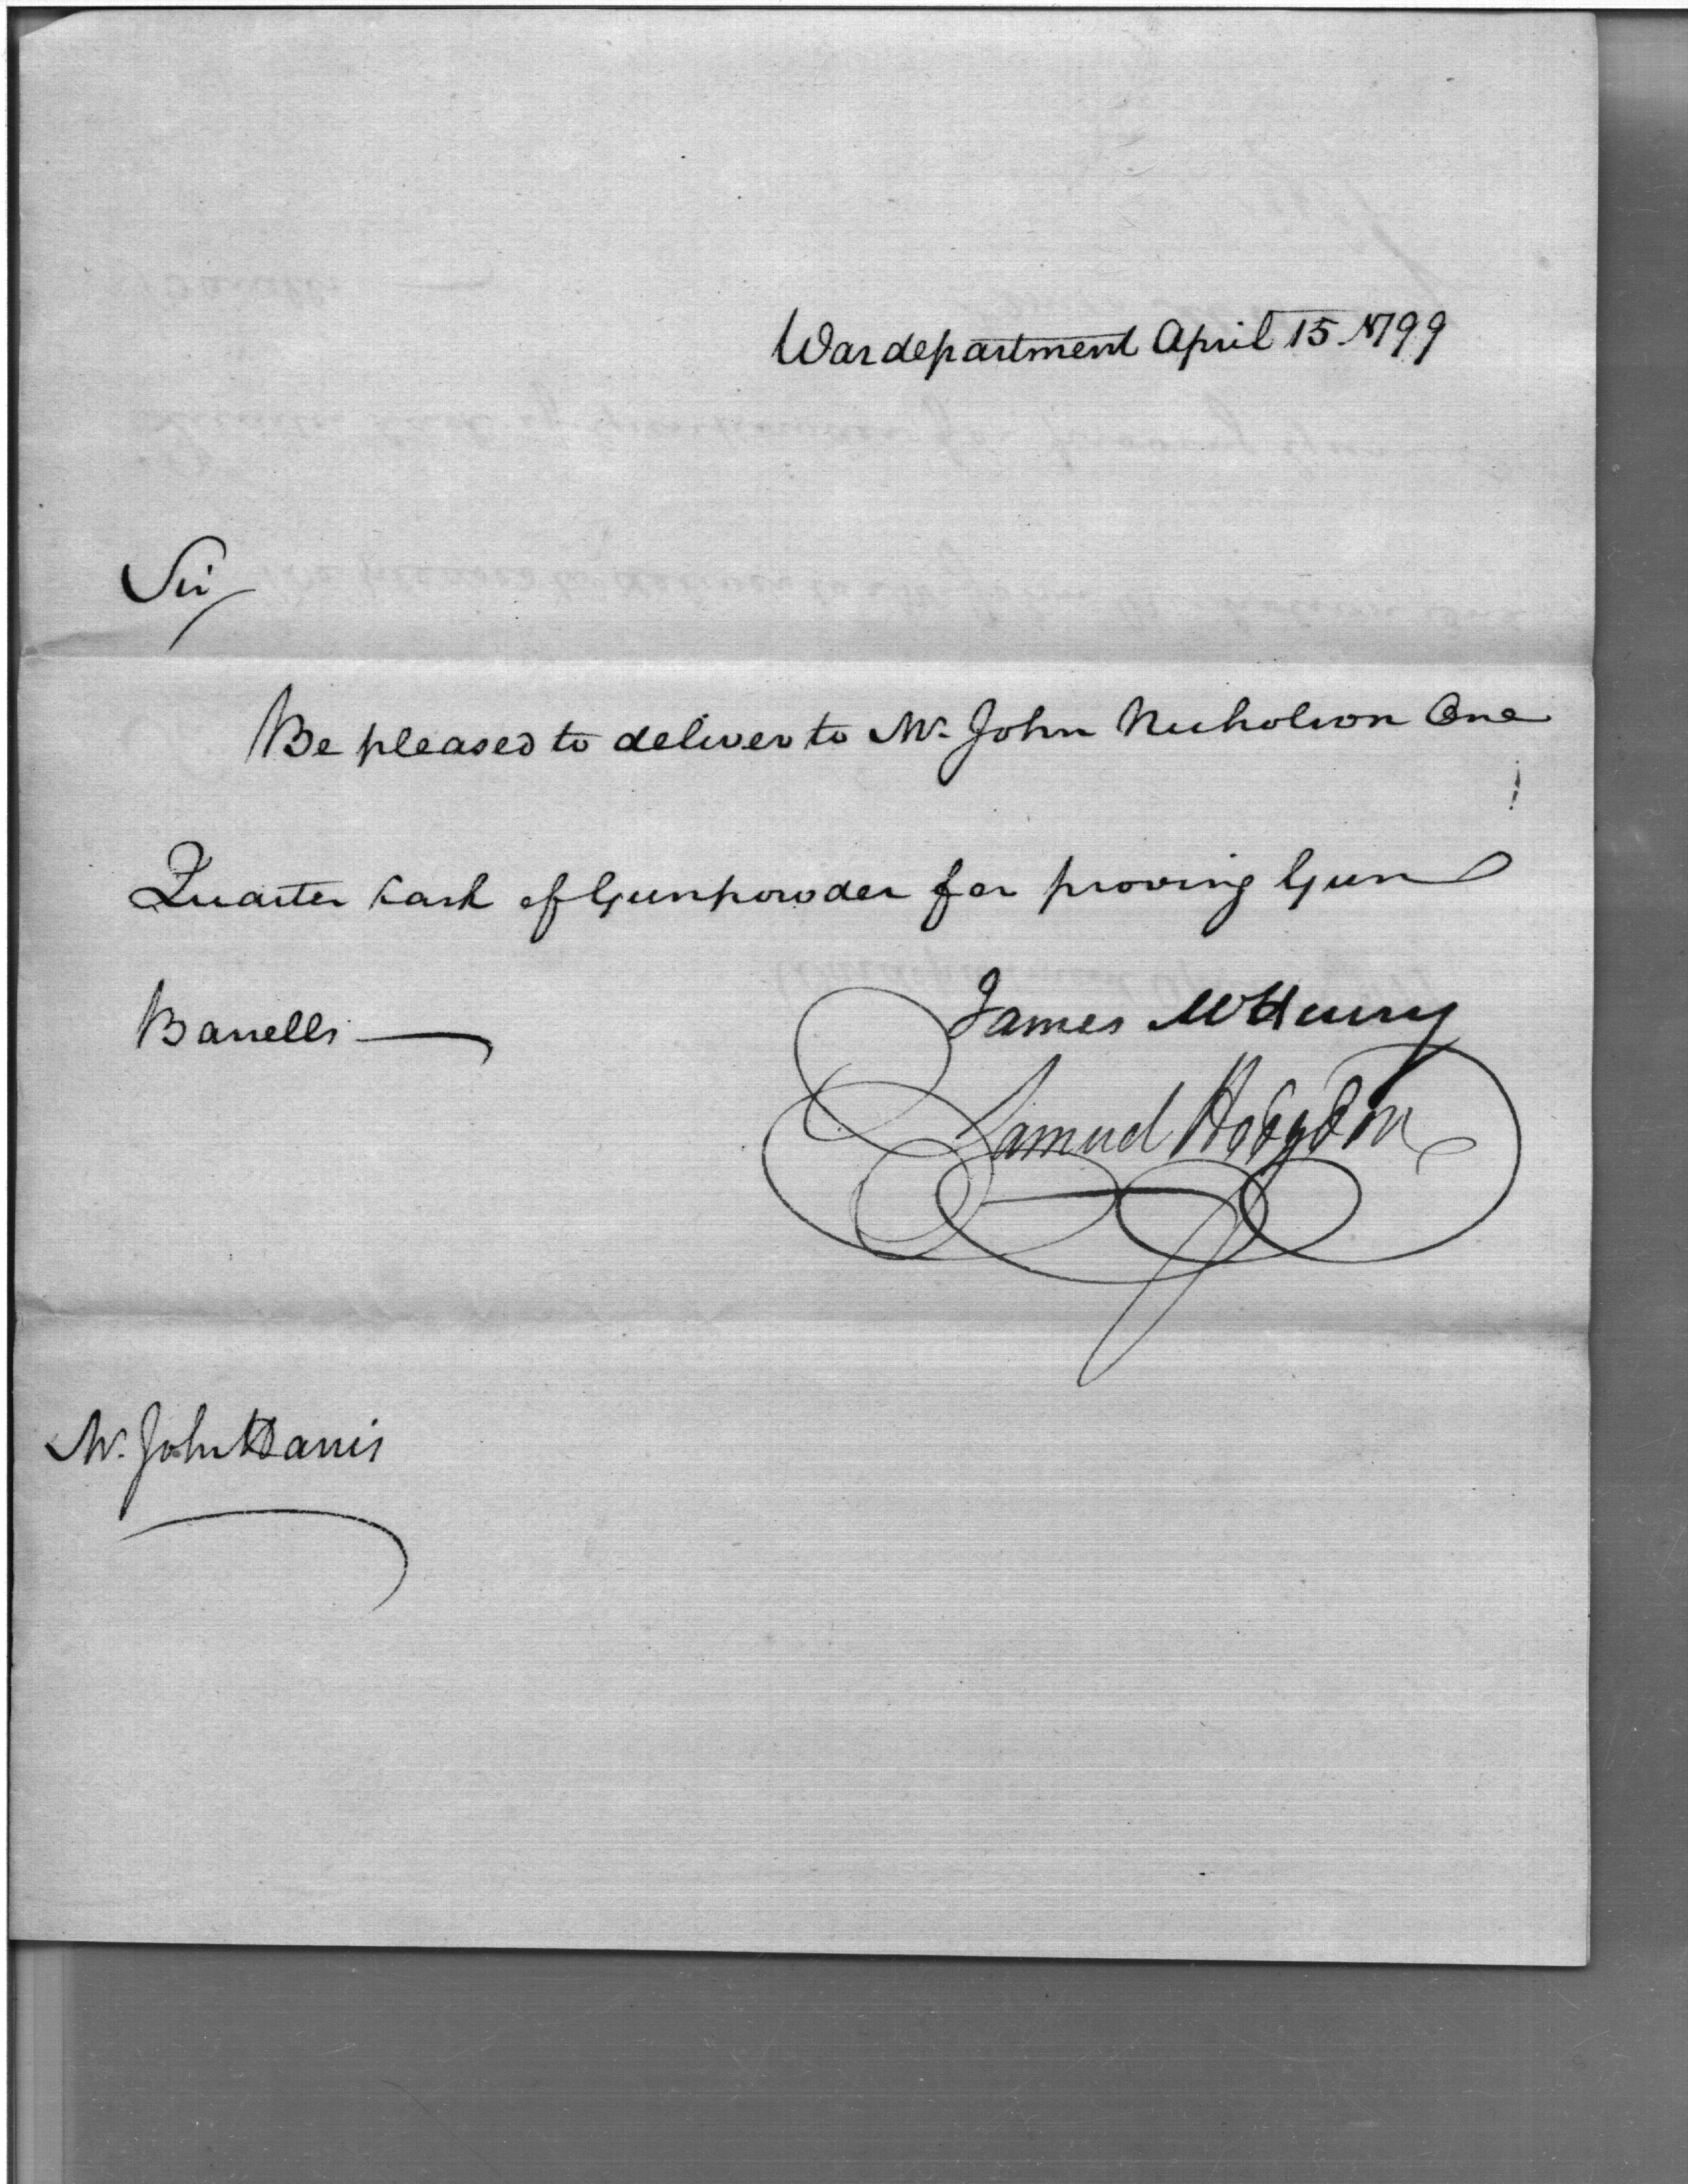 War department April 15 1799
Sir
Be pleased to deliver to Mr. John Nicholson One
Quarter Cask of Gunpowder for proving Gun
Barrells
James McHenry
Samuel Hodgdon
Mr. John Harris